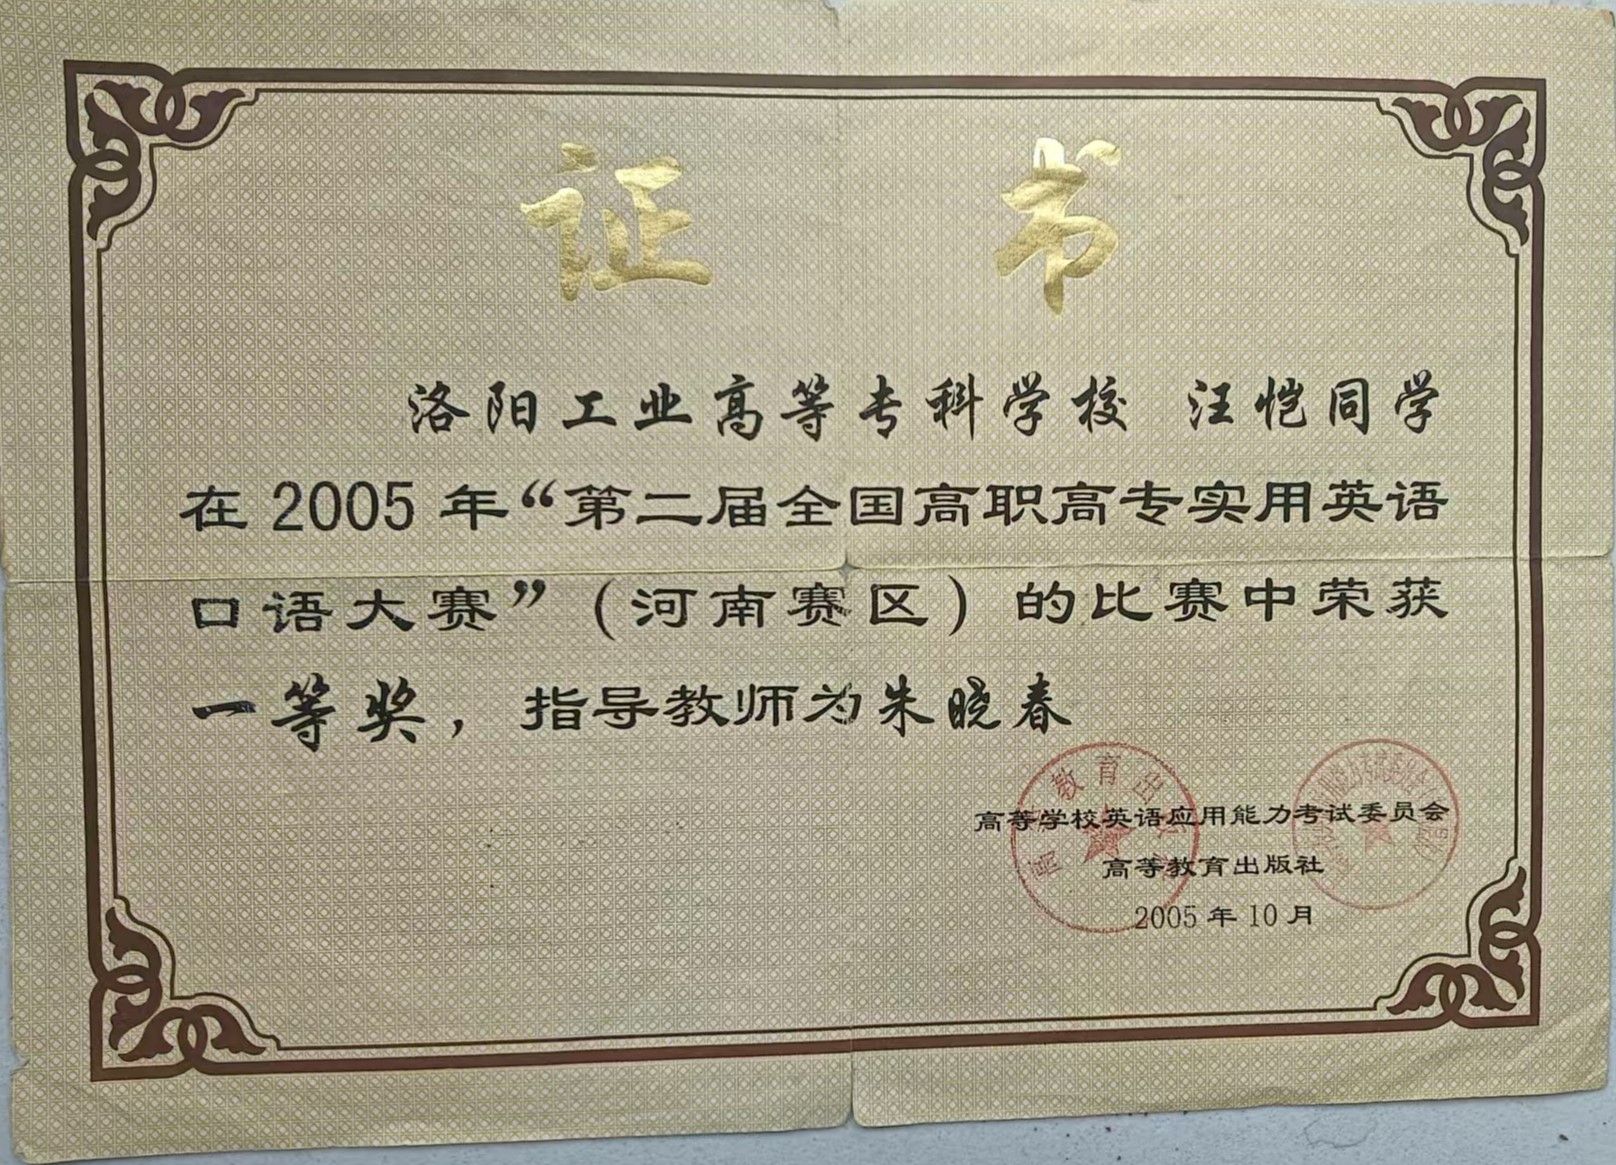 证书
洛阳工业高等专科学校 汪恺同学
在 2005 年“第二届全国高职高专实用英语
口语大赛”(河南赛区)的比赛中荣获
一等奖，指导教师为朱晓春
高等学校英语应用能力考试委员会
高等教育出版社
2005 年 10 月